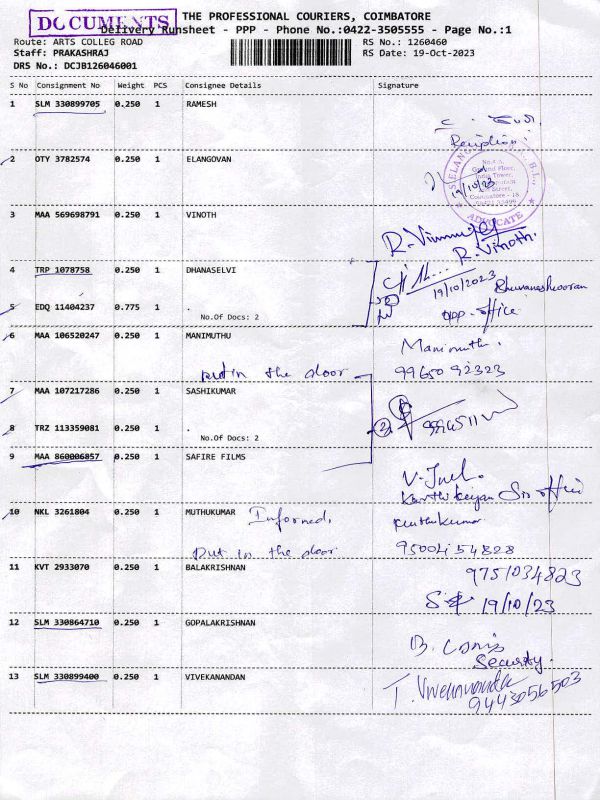 DOCUMENTS
THE PROFESSIONAL COURIERS, COIMBATORE
Delivery Runsheet - PPP - Phone No.:0422-3505555 - Page No.:1
Route: ARTS COLLEG ROAD RS No.: 1260460
Staff: PRAKASHRAJ RS Date: 19-Oct-2023
DRS No.: DCJB126046001
S No Consignment No Weight PCS Consignee Details Signature
1 SLM 330899705 0.250 1 RAMESH
Reception
2 OTY 3782574 0.250 1 ELANGOVAN
19/10/23
ADVOCATE
3 MAA 569698791 0.250 1 VINOTH
R. Vinoth.
4 TRP 1078758 0.250 1 DHANASELVI
19/10/2023
5 EDQ 11404237 0.775 1 .
No.Of Docs: 2
opp. office
6 MAA 106520247 0.250 1 MANIMUTHU
Manimuthu.
put in the door 9965092323
7 MAA 107217286 0.250 1 SASHIKUMAR
8 TRZ 113359081 0.250 1 .
No.Of Docs: 2
9 MAA 860006857 0.250 1 SAFIRE FILMS
10 NKL 3261804 0.250 1 MUTHUKUMAR Informed,
put in the door 9500454828
11 KVT 2933070 0.250 1 BALAKRISHNAN 9751034823
19/10/23
12 SLM 330864710 0.250 1 GOPALAKRISHNAN
Security.
13 SLM 330899400 0.250 1 VIVEKANANDAN
9443056503